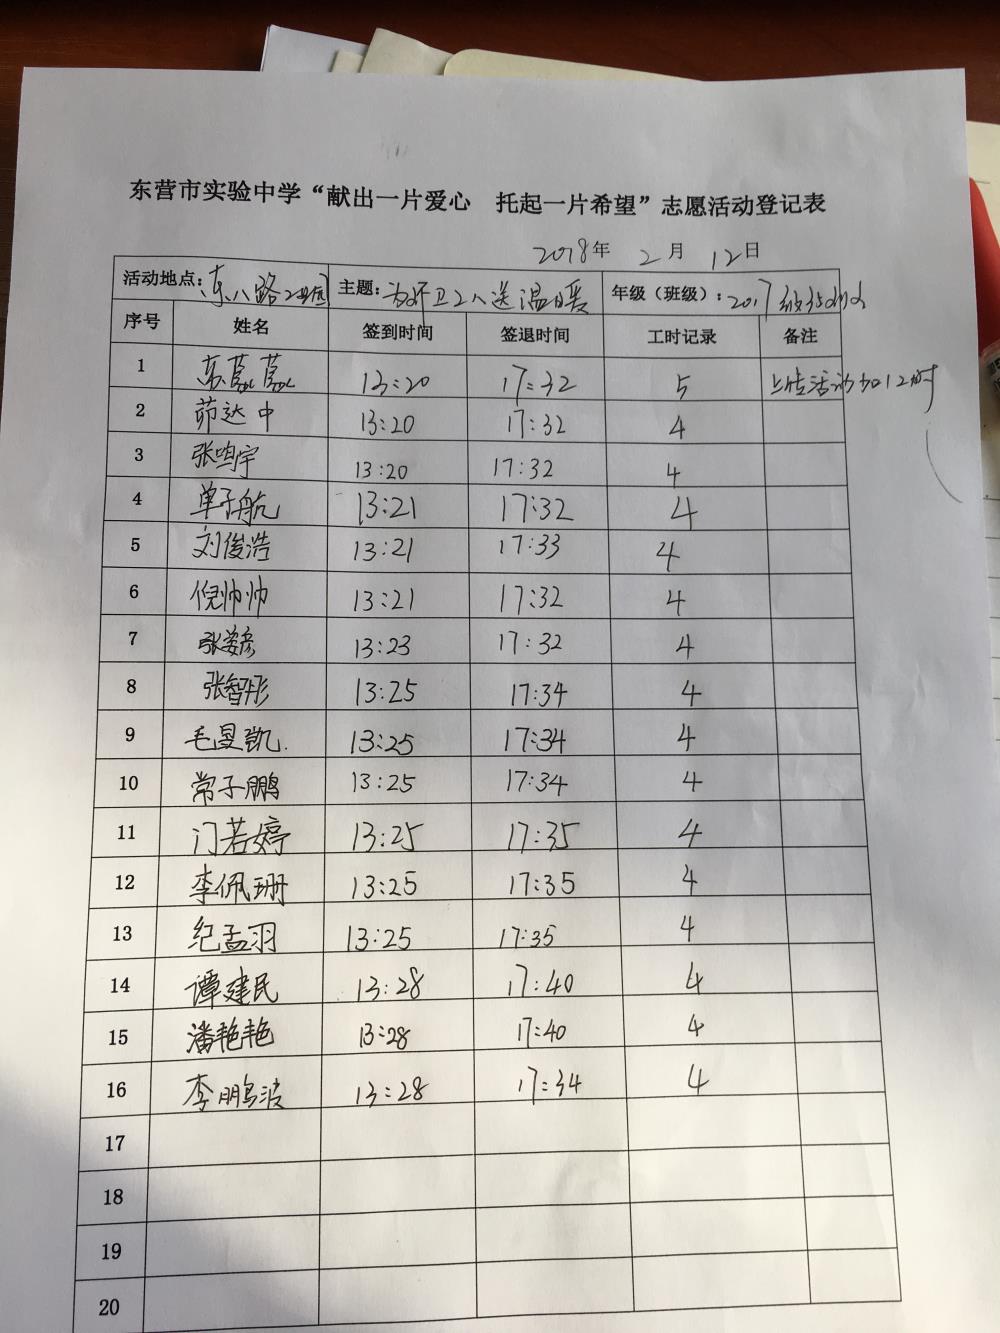 东营市实验中学“献出一片爱心 托起一片希望”志愿活动登记表
2018年 2月 12日
活动地点：东八路 主题：为环卫工人送温暖 年级（班级）：2017级
序号 姓名 签到时间 签退时间 工时记录 备注
1 13:20 17:32 5 上传活动加1小时
2 茆达中 13:20 17:32 4
3 张鸣宇 13:20 17:32 4
4 单子航 13:21 17:32 4
5 刘俊浩 13:21 17:33 4
6 倪帅帅 13:21 17:32 4
7 张姿彦 13:23 17:32 4
8 张智彤 13:25 17:34 4
9 毛昱凯. 13:25 17:34 4
10 常子鹏 13:25 17:34 4
11 门若婷 13:25 17:35 4
12 李佩珊 13:25 17:35 4
13 纪孟羽 13:25 17:35 4
14 谭建民 13:28 17:40 4
15 潘艳艳 13:28 17:40 4
16 李鹏波 13:28 17:34 4
17
18
19
20